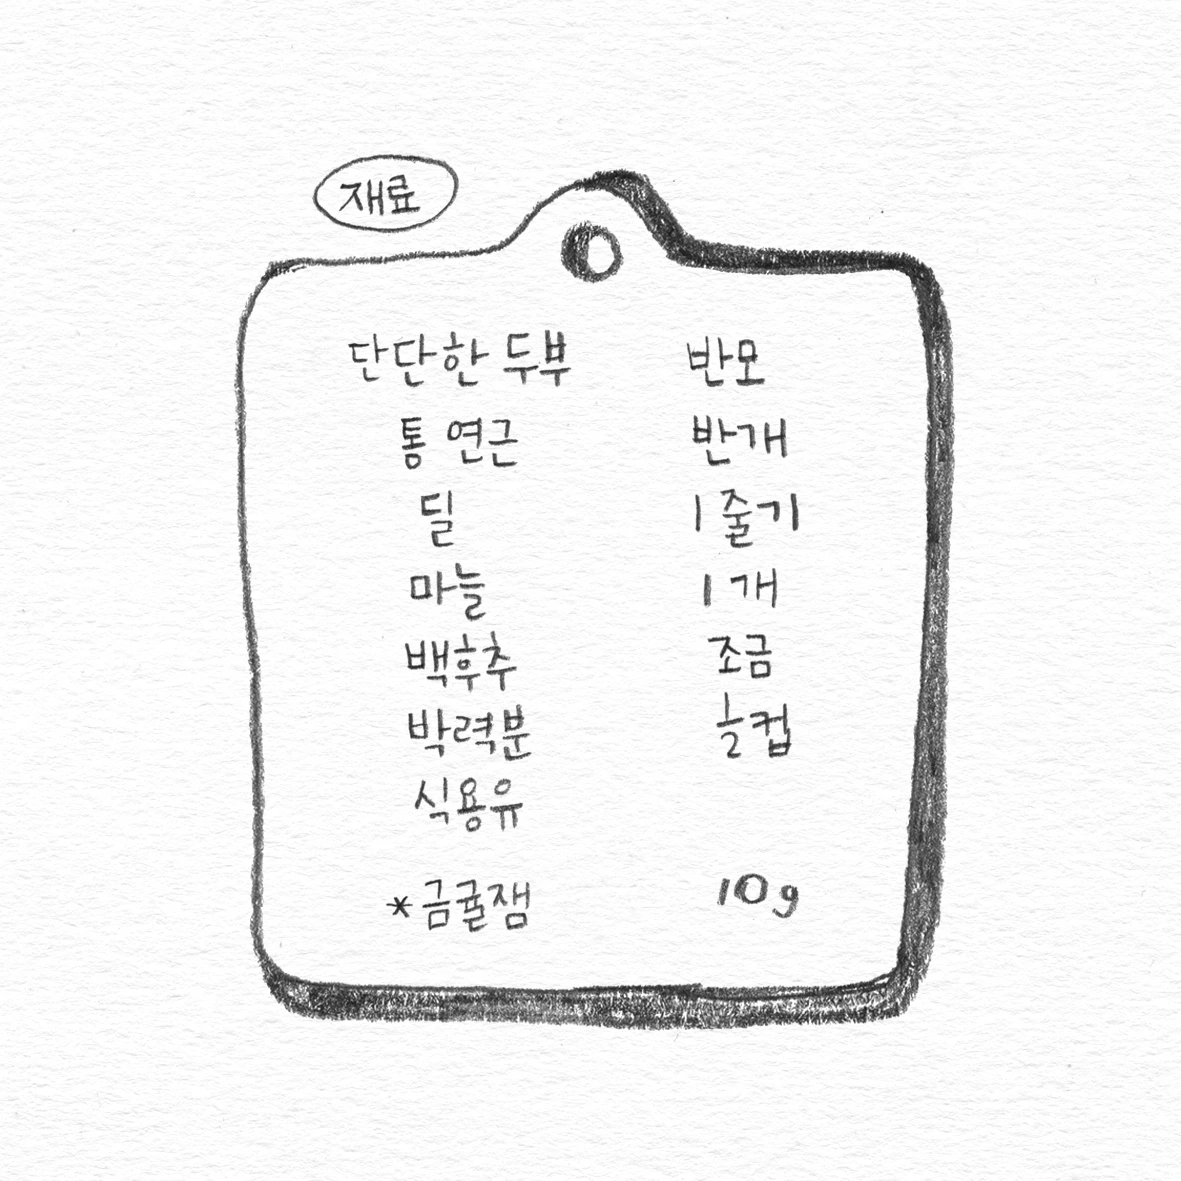 재료
단단한 두부 반모
통 연근 반개
딜 1줄기
마늘 1개
백후추 조금
박력분 1/2컵
식용유
*금귤잼 10g